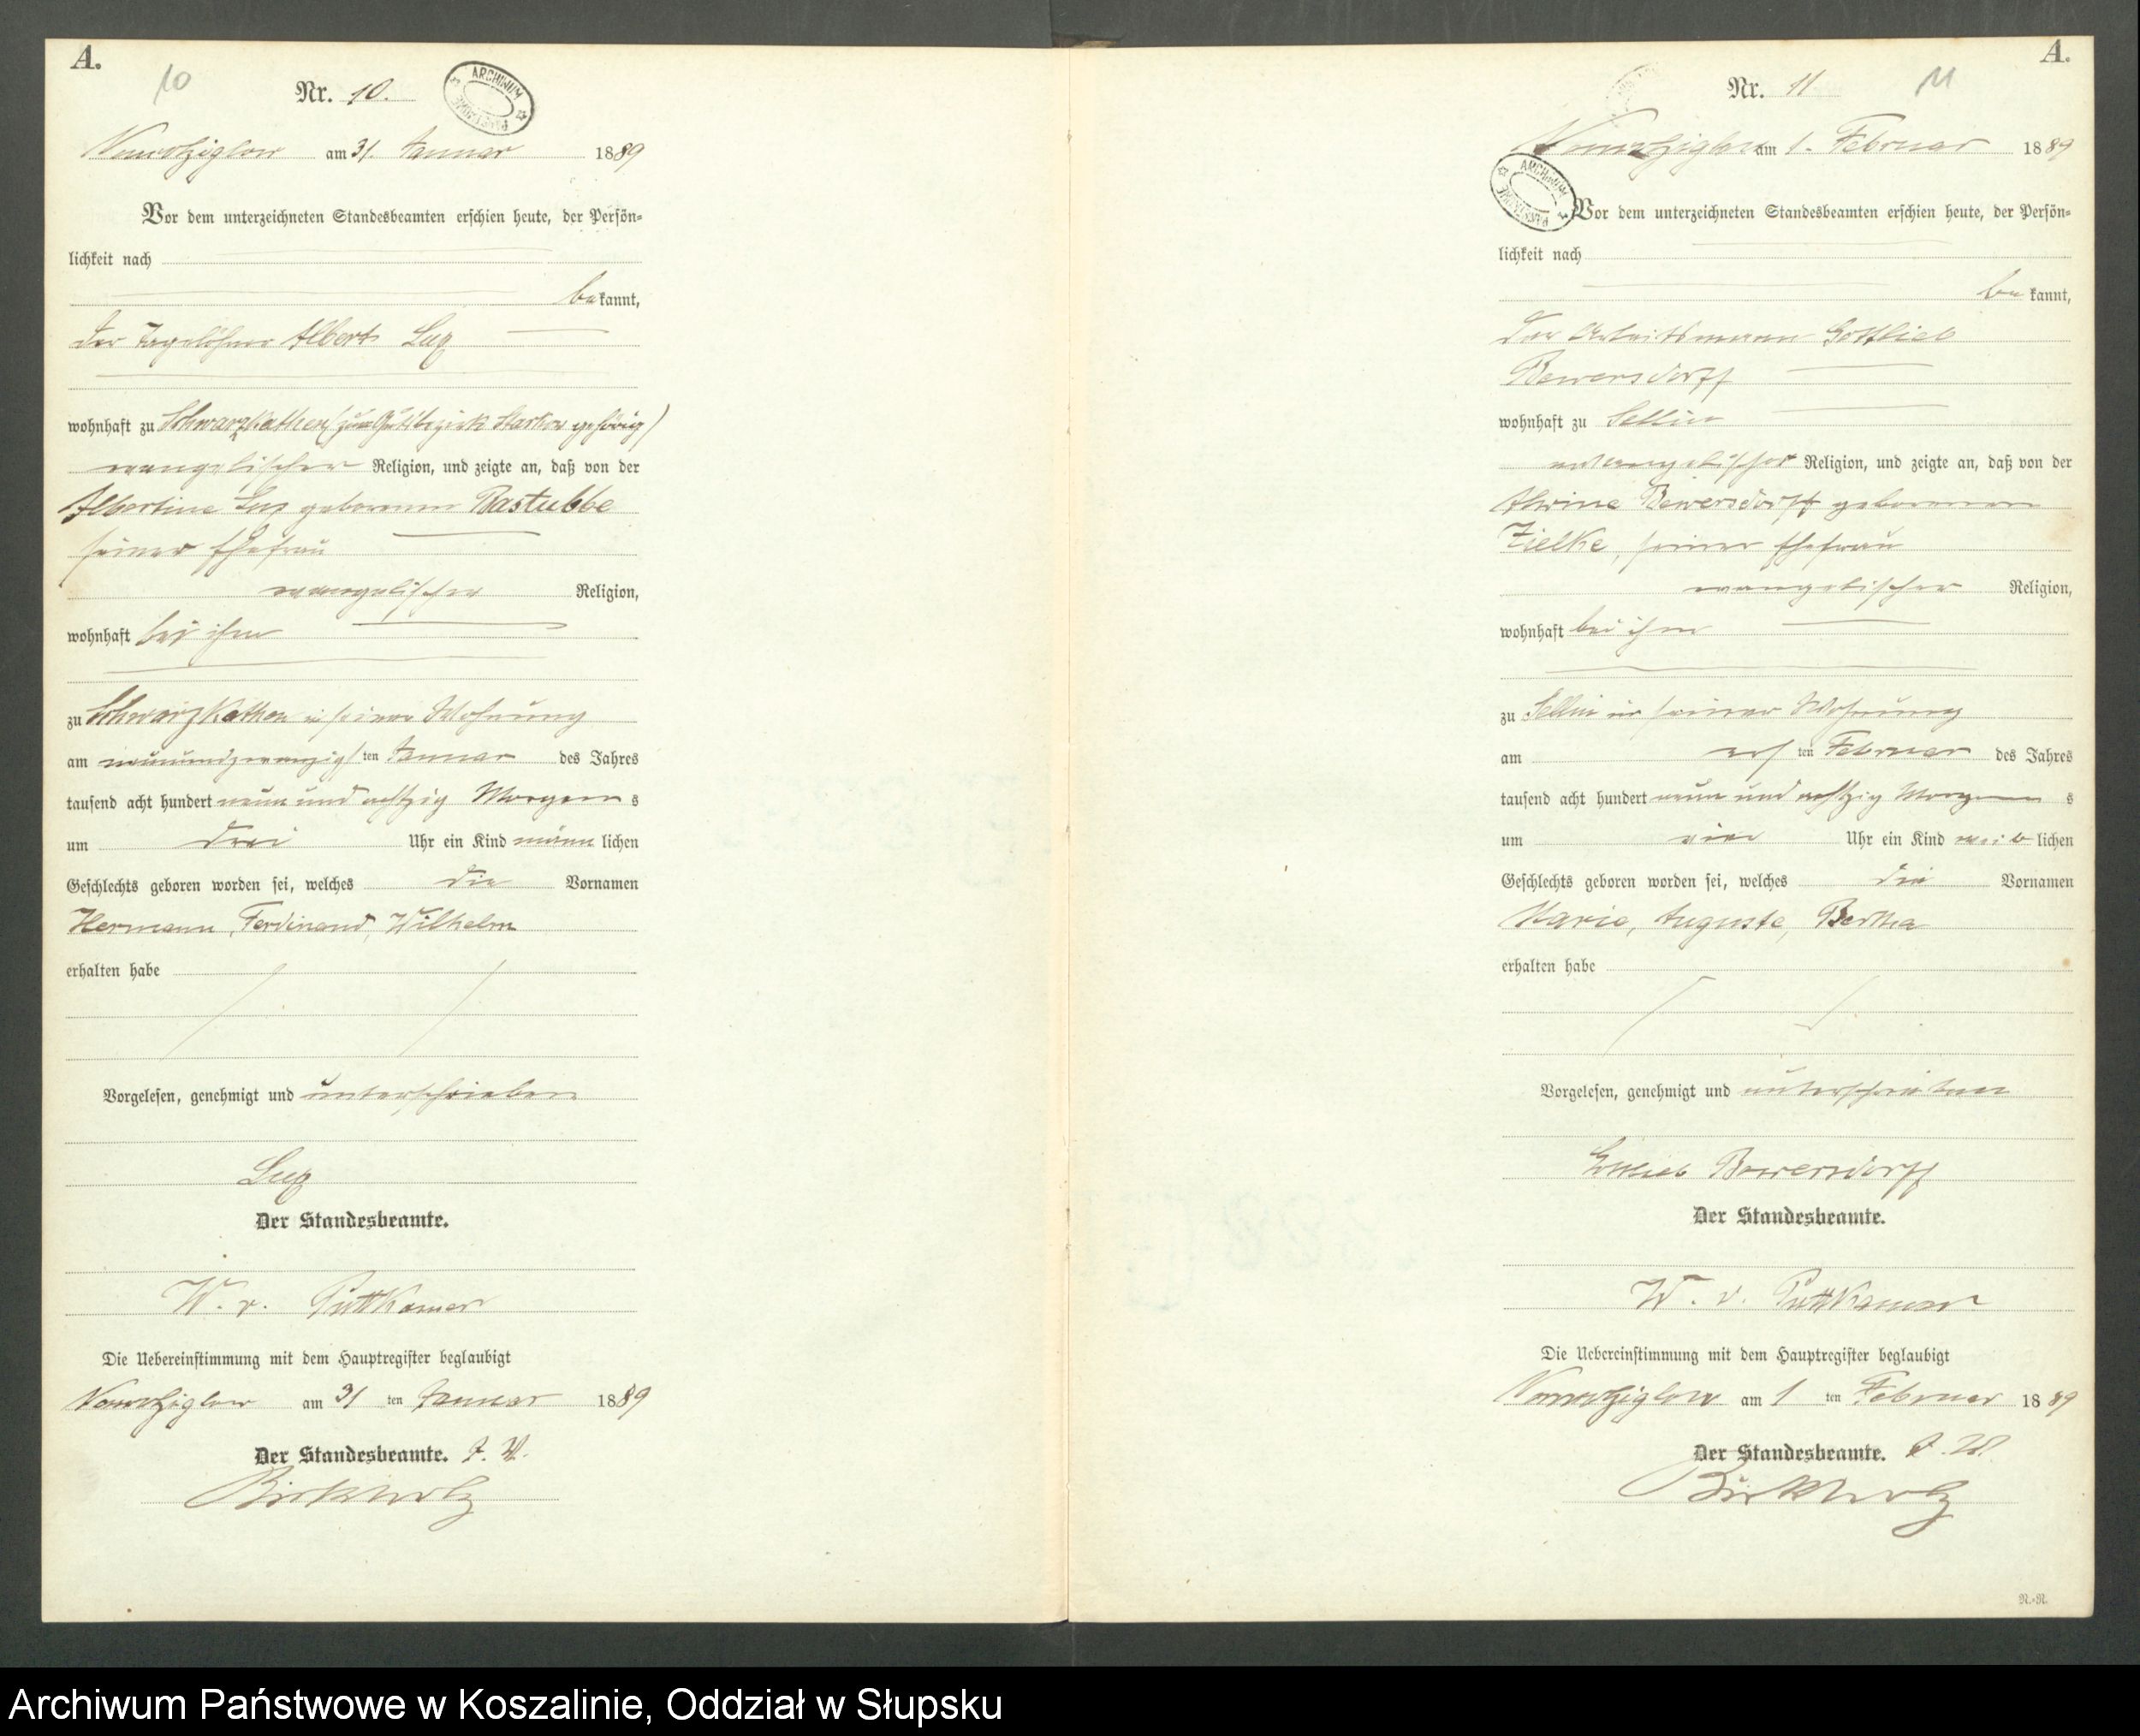 A.
10
Nr. 10.
ARCHIWUM PAŃSTWOWE
Nowotziglow am 31. Januar 1889
Vor dem unterzeichneten Standesbeamten erschien heute, der Persön=
lichkeit nach
bekannt,
der Tagelöhner Albert Lug
wohnhaft zu Schwarzkathen (zum Gutsbezirk Starkow gehörig)
evangelischer Religion, und zeigte an, daß von der
Albertine Lug geborenen Bastubbe
seiner Ehefrau
evangelischer Religion,
wohnhaft bei ihm
zu Schwarzkathen in seiner Wohnung
am neunundzwanzigsten Januar des Jahres
tausend acht hundert neun und achtzig Morgens
um drei Uhr ein Kind männlichen
Geschlechts geboren worden sei, welches die Vornamen
Hermann, Ferdinand, Wilhelm
erhalten habe
Vorgelesen, genehmigt und unterschrieben
Lug
Der Standesbeamte.
W. v. Puttkamer
Die Uebereinstimmung mit dem Hauptregister beglaubigt
Nowotziglow am 31 ten Januar 1889
Der Standesbeamte. J. V.
Birkholz
A.
11
Nr. 11
ARCHIWUM PAŃSTWOWE
Nowotziglow am 1. Februar 1889
Vor dem unterzeichneten Standesbeamten erschien heute, der Persön=
lichkeit nach
bekannt,
der Arbeitsmann Gottlieb
Bewersdorff
wohnhaft zu Sellin
evangelischer Religion, und zeigte an, daß von der
Alwine Bewersdorff geborenen
Zielke, seiner Ehefrau
evangelischer Religion,
wohnhaft bei ihm
zu Sellin in seiner Wohnung
am ersten Februar des Jahres
tausend acht hundert neun und achtzig Morgens
um vier Uhr ein Kind weiblichen
Geschlechts geboren worden sei, welches die Vornamen
Marie, Auguste, Bertha
erhalten habe
Vorgelesen, genehmigt und unterschrieben
Gottlieb Bewersdorff
Der Standesbeamte.
W. v. Puttkamer
Die Uebereinstimmung mit dem Hauptregister beglaubigt
Nowotziglow am 1 ten Februar 1889
Der Standesbeamte. J. V.
Birkholz
N.=N.
Archiwum Państwowe w Koszalinie, Oddział w Słupsku